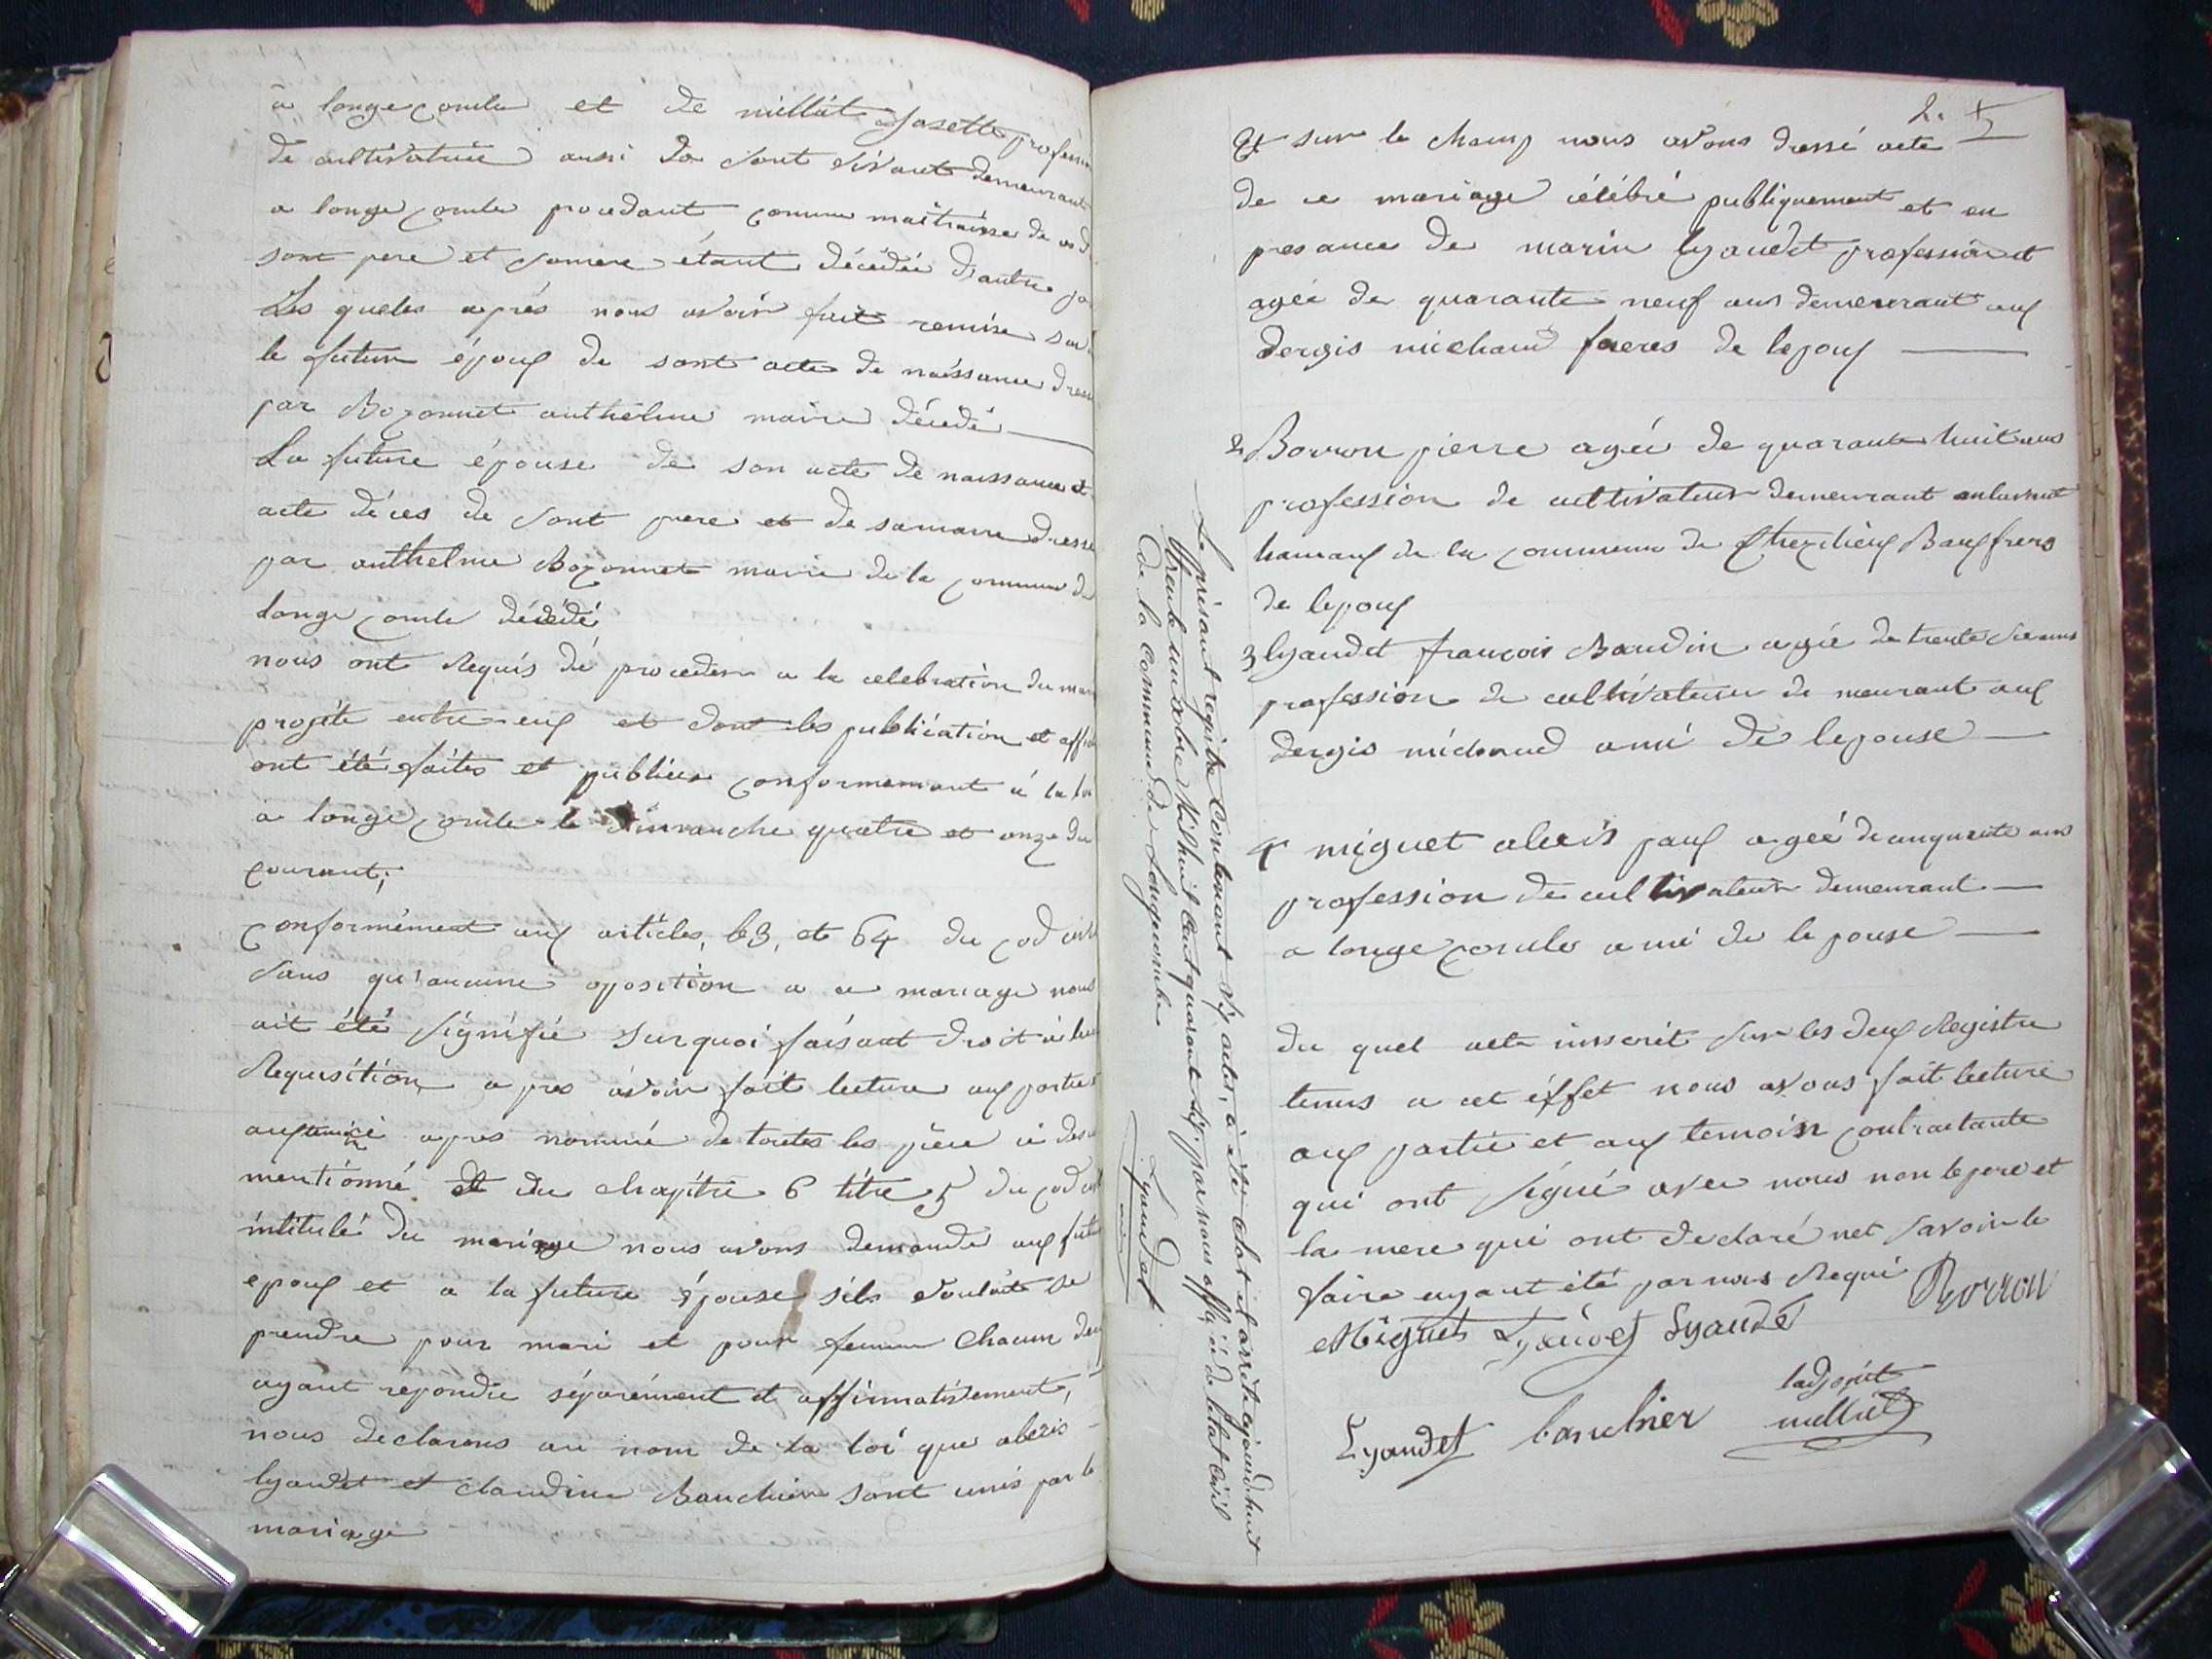 a longecombe et de milliat Josette profession
de cultivatrice aussi da sont vivant demeurant
a longe combe procedant comme maitraisse de
sont pere et samere étant décédée d'autre
Les queles après nous avoir fait remise
le futur époux de sont acte de naissance
par Bozonnet anthelme maire décédé
La future épouse de son acte de naissance et
acte décès de sont pere et de samere
par anthelme Bozonnet maire de la commune de
longe combe décédé
nous ont Requis dé proceder a la celebration du
projeté entre eux et dont les publication et
ont été faites et publiées conformemant à la loi
a longe combe le dimanche quatre et onze du
courant;
conformément aux articles, 63, et 64 du cod civil
sans qu'aucune oposition a ce mariage nous
ait été signifié surquoi faisant droit à leur
Requisition apres avoir fait lecture aux parties
aux apres nommé de toutes les piece ci
mentionné et du chapitre 6 titre 5 du cod
intitulé du mariage nous avons demandé aux
epoux et a la future épouse sils voulait se
prendre pour mari et pour femme chacun
ayant répondu séparément et affirmativement,
nous declarons au nom de la loi que alexis
lyaudet et claudine Bauchier sont unis par le
mariage
2.
Et sur le champ nous avons dressé acte
de ce mariage célébré publiquement et en
presance de marin lyaudet profession et
agée de quarante neuf ans demeurant aux
dergis michaud freres de lepoux
2 Borron pierre agée de quarante huit ans
profession de cultivateur demeurant
hamaux de la commune de Baux frere
de lepoux
3 lyaudet françois Baudin agée de trente
profession de cultivateur de meurant aux
dergis michaud ami de lepouse
4 miguet alexis paux agée de cinquante ans
profession de cultivateur demeurant
a longe combe ami de le pouse
du quel acte inscrit sur les deux Registre
tenus a cet éffet nous avous fait lecture
aux partie et aux temoisn contractante
qui ont signé avec nous non le pere et
la mere qui ont declaré net savoir le
faire ayant été par nous Requi
Miguet Lyaudet Lyaudet Borron
Lyaudet bauchier ladjoint
milliat
Le présant registre Contenant actes, à été Clot et arrêté ajourd.huit
trente un xobre mil huit Cent quarante par nous offi. ci de létat Civil
de la Commune de Longecombe
Lyaudet